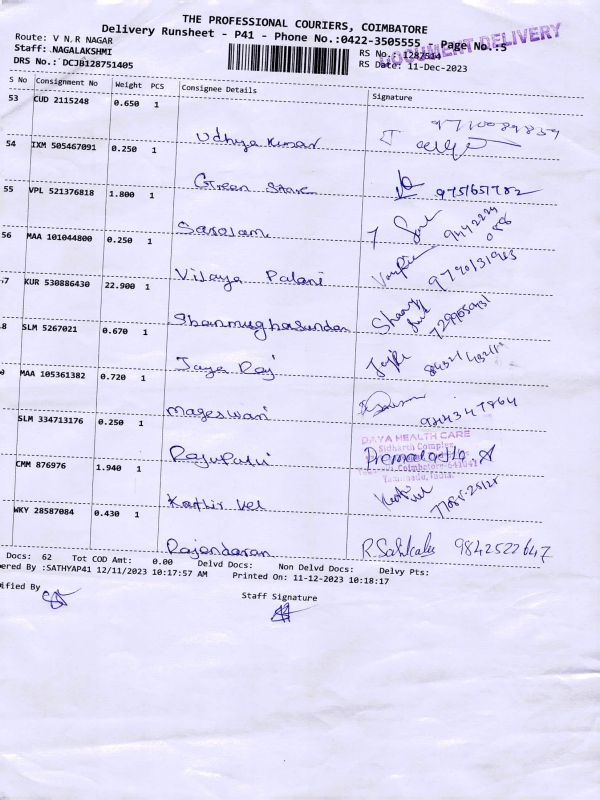 THE PROFESSIONAL COURIERS, COIMBATORE
Delivery Runsheet - P41 - Phone No.:0422-3505555 - Page No.:5
DOCUMENT DELIVERY
Route: V N.R NAGAR
RS No.:1287514
Staff: NAGALAKSHMI
RS Date: 11-Dec-2023
DRS No.: DCJB128751405
S No Consignment No Weight PCS Consignee Details Signature
53 CUD 2115248 0.650 1
Udhya Kumar
54 IXM 505467091 0.250 1
Green Store 9751651782
55 VPL 521376818 1.800 1
Sarojam
56 MAA 101044800 0.250 1
Vijaya Palani
57 KUR 530886430 22.900 1
Shanmughasundar
8 SLM 5267021 0.670 1
Jaya Raj
MAA 105361382 0.720 1
Mageswari
SLM 334713176 0.250 1
DAYA HEALTH CARE
Sidharth Complex
Rajupalu Premalatha. A
Coimbatore-641041
Tamilnadu, India.
CMM 876976 1.940 1
Kathir Vel
WKY 28587084 0.430 1
Rajendaran 9842522647
Docs: 62 Tot COD Amt: 0.00 Delvd Docs: Non Delvd Docs: Delvy Pts:
ered By :SATHYAP41 12/11/2023 10:17:57 AM Printed On: 11-12-2023 10:18:17
ified By
Staff Signature